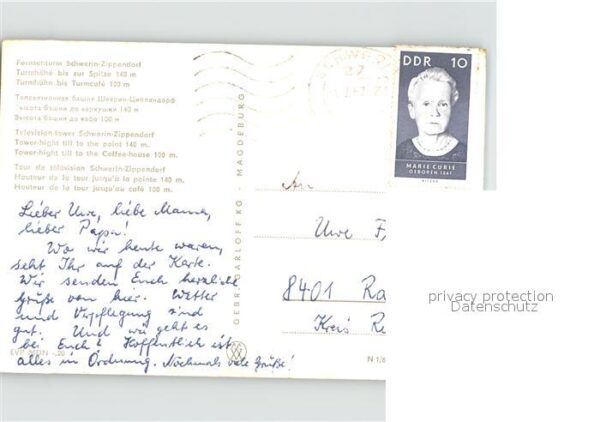 Fernsehturm Schwerin-Zippendorf
Turmhöhe bis zur Spitze 140 m
Turmhöhe bis Turmcafé 100 m
Телевизионная башня Шверин-Циппендорф
Высота башни до верхушки 140 м
Высота башни до кафе 100 м
Television-tower Schwerin-Zippendorf
Tower-hight till to the point 140 m.
Tower-hight till to the Coffee-house 100 m.
Tour de télévision Schwerin-Zippendorf
Hauteur de la tour jusqu'à la pointe 140 m.
Hauteur de la tour jusqu'au café 100 m.
Lieber Uwe, liebe Mama,
lieber Papa!
Wo wir heute waren,
seht Ihr auf der Karte.
Wir senden Euch herzliche
Grüße von hier. Wetter
und Verpflegung sind
gut. Und wie geht es
bei Euch? Hoffentlich ist
alles in Ordnung. Nochmals viele Grüße!
EVP MDN -,20
GEBR. GARLOFF KG · MAGDEBURG
N 1/6
DDR 10
MARIE CURIE
GEBOREN 1867
An
Uwe F
8401 Ra
Kreis Re
privacy protection
Datenschutz